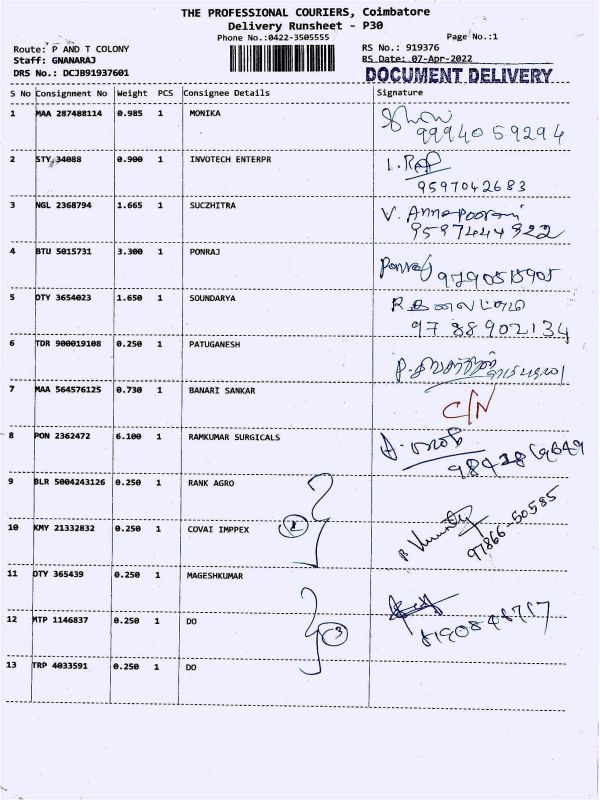 THE PROFESSIONAL COURIERS, Coimbatore
Delivery Runsheet - P30
Phone No.:0422-3505555
Page No.:1
Route: P AND T COLONY
RS No.: 919376
Staff: GNANARAJ
RS Date: 07-Apr-2022
DRS No.: DCJB91937601
DOCUMENT DELIVERY
S No Consignment No Weight PCS Consignee Details Signature
1 MAA 287488114 0.985 1 MONIKA
99940 59294
2 STY 34088 0.900 1 INVOTECH ENTERPR
9597042683
3 NGL 2368794 1.665 1 SUCZHITRA V. Annapoorani
9597444922
4 BTU 5015731 3.300 1 PONRAJ Ponraj 9790515905
5 OTY 3654023 1.650 1 SOUNDARYA
97 88902134
6 TDR 900019108 0.250 1 PATUGANESH
7 MAA 564576125 0.730 1 BANARI SANKAR C/N
8 PON 2362472 6.100 1 RAMKUMAR SURGICALS
9 BLR 5004243126 0.250 1 RANK AGRO
10 KMY 21332832 0.250 1 COVAI IMPPEX 2
97866-50585
11 OTY 365439 0.250 1 MAGESHKUMAR
12 MTP 1146837 0.250 1 DO 3
13 TRP 4033591 0.250 1 DO